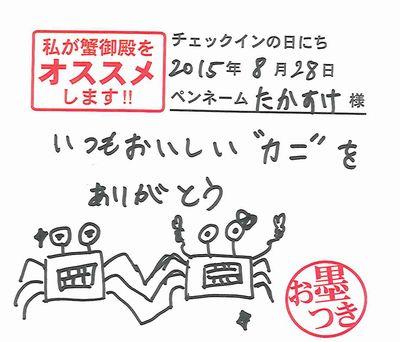 私が蟹御殿を
オススメ
します!!
チェックインの日にち
2015年8月28日
ペンネーム たかすけ 様
いつもおいしい"カニ"を
ありがとう
お墨つき